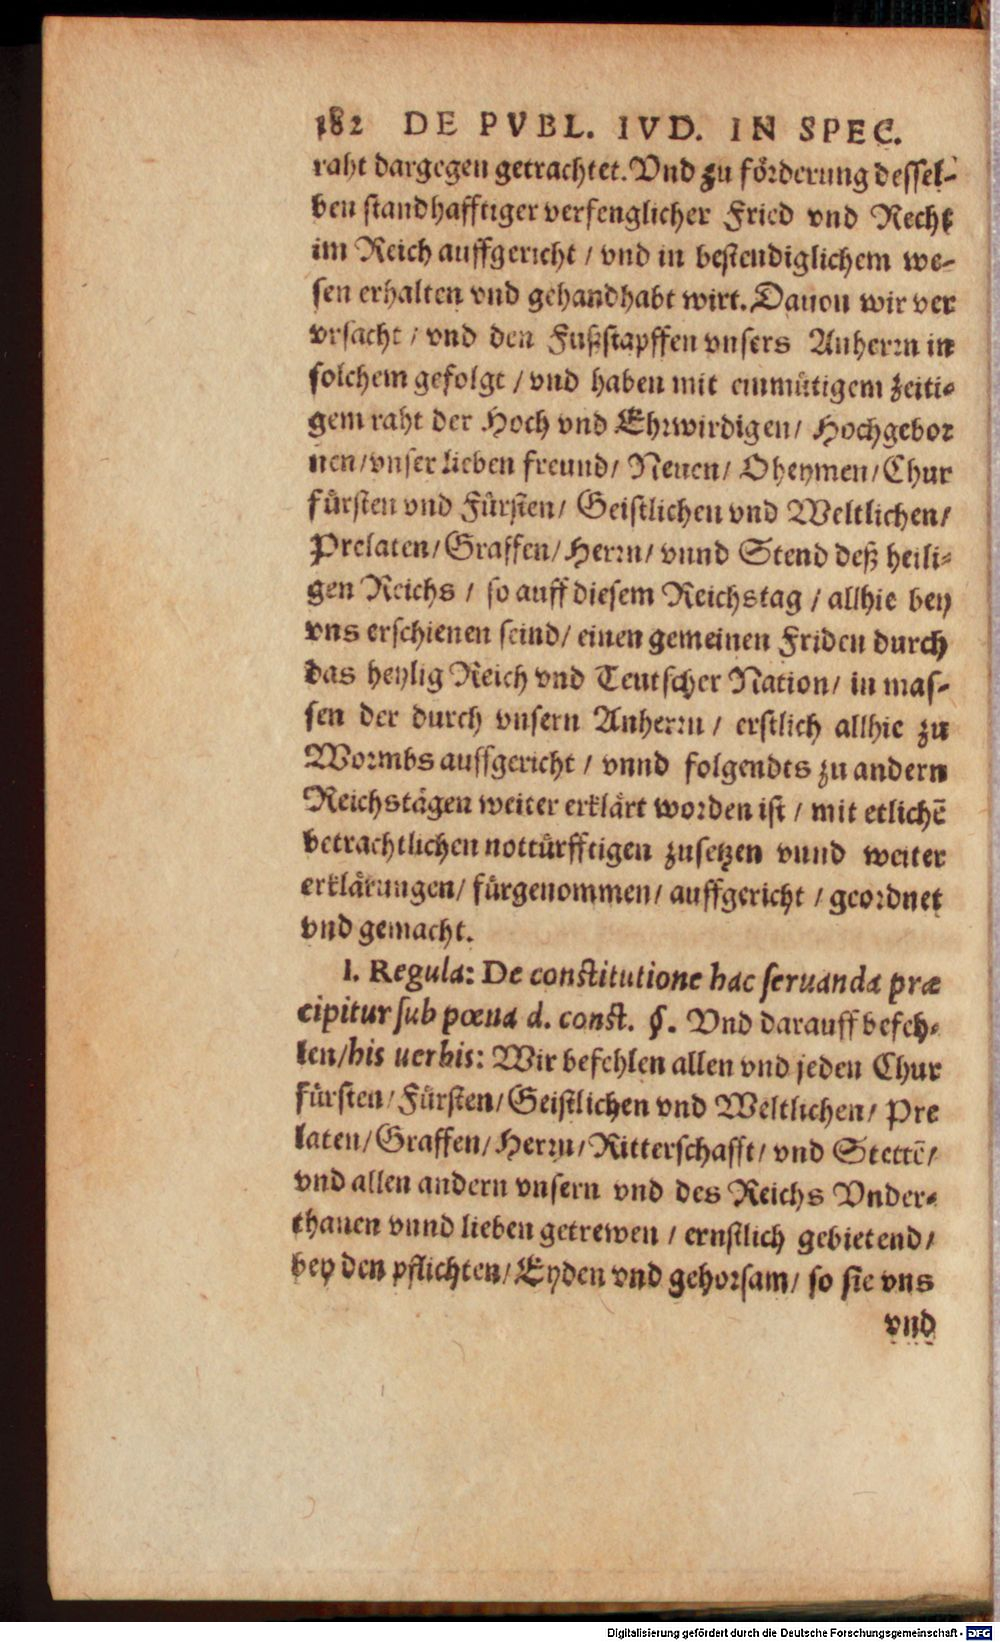 182 DE PVBL. IVD. IN SPEC.
raht dargegen getrachtet. Vnd zu förderung dessel-
ben standhafftiger verfenglicher Fried vnd Recht
im Reich auffgericht / vnd in bestendiglichem we-
sen erhalten vnd gehandhabt wirt. Dauon wir ver
vrsacht / vnd den Fußstapffen vnsers Anherrn in
solchem gefolgt / vnd haben mit einmütigem zeiti-
gem raht der Hoch vnd Ehrwirdigen / Hochgebor
nen / vnser lieben freund / Neuen / Oheymen / Chur
fürsten vnd Fürsten / Geistlichen vnd Weltlichen /
Prelaten / Graffen / Herrn / vnnd Stend deß heili-
gen Reichs / so auff diesem Reichstag / allhie bey
vns erschienen seind / einen gemeinen Friden durch
das heylig Reich vnd Teutscher Nation / in mas-
sen der durch vnsern Anherrn / erstlich allhie zu
Wormbs auffgericht / vnnd folgendts zu andern
Reichstägen weiter erklärt worden ist / mit etlichē
betrachtlichen nottürfftigen zusetzen vnnd weiter
erklärungen / fürgenommen / auffgericht / geordnet
vnd gemacht.
I. Regula: De constitutione hac seruanda præ
cipitur sub pœna d. const. §. Vnd darauff befeh-
len / his uerbis: Wir befehlen allen vnd jeden Chur
fürsten / Fürsten / Geistlichen vnd Weltlichen / Pre
laten / Graffen / Herrn / Ritterschafft / vnd Stettē /
vnd allen andern vnsern vnd des Reichs Vnder-
thanen vnnd lieben getrewen / ernstlich gebietend /
bey den pflichten / Eyden vnd gehorsam / so sie vns
vnd
Digitalisierung gefördert durch die Deutsche Forschungsgemeinschaft - DFG